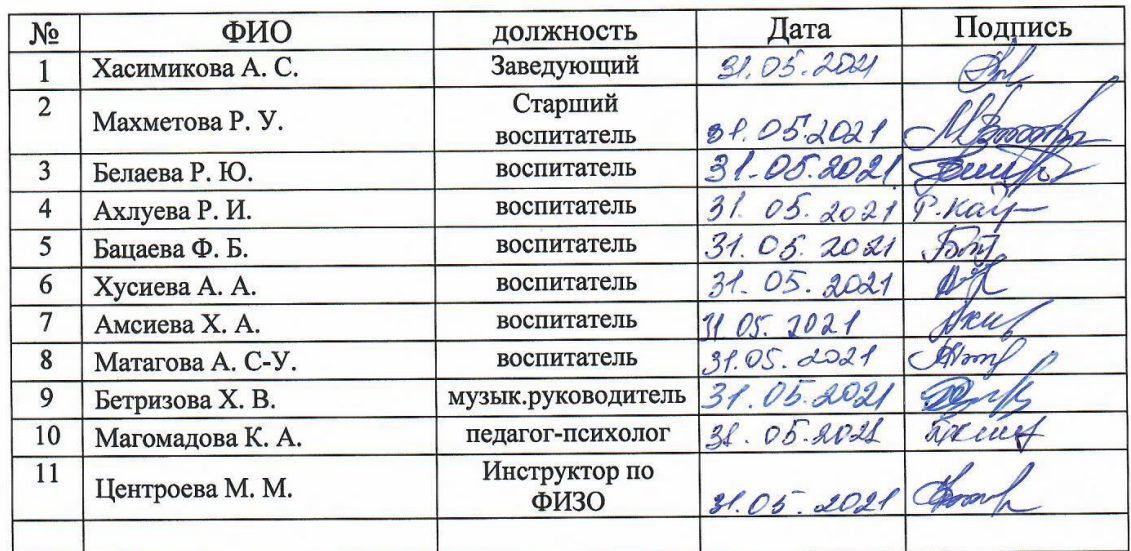 № ФИО должность Дата Подпись
1 Хасимикова А. С. Заведующий 31.05.2021
2 Махметова Р. У. Старший воспитатель 31.05.2021
3 Белаева Р. Ю. воспитатель 31.05.2021
4 Ахлуева Р. И. воспитатель 31.05.2021
5 Бацаева Ф. Б. воспитатель 31.05.2021
6 Хусиева А. А. воспитатель 31.05.2021
7 Амсиева Х. А. воспитатель 31.05.2021
8 Матагова А. С-У. воспитатель 31.05.2021
9 Бетризова Х. В. музык.руководитель 31.05.2021
10 Магомадова К. А. педагог-психолог 31.05.2021
11 Центроева М. М. Инструктор по ФИЗО 31.05.2021